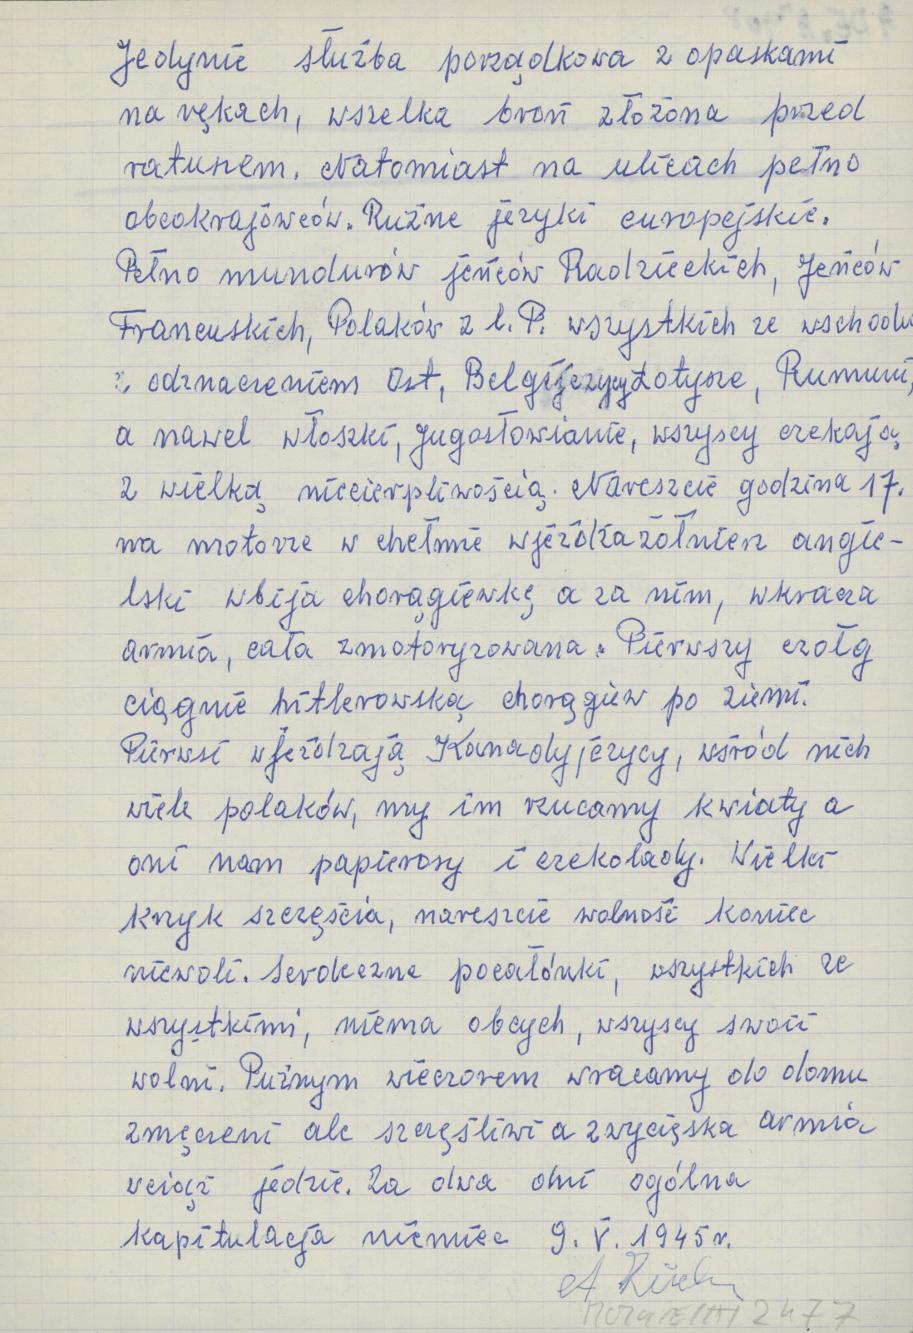 Jedynie służba porządkowa z opaskami
na rękach, wszelka broń złożona przed
ratunem. Natomiast na ulicach pełno
obcokrajówców. Rużne języki europejskie.
Pełno mundurów jeńców Radzieckich, Jeńców
Francuskich, Polaków z l. P. wszystkich ze wschodu
z odznaczeniem Ost, Belgijczycy Łotysze, Rumuni,
a nawel włoszki, Jugosłowianie, wszyscy czekają
z wielką niecierpliwością. Nareszcie godzina 17.
na motorze w chełmie wjeżdża żołnierz angie-
lski wbija chorągiewkę a za nim, wkracza
armia, cała zmotoryzowana. Pierwszy czołg
ciągnie hitlerowską chorągiew po ziemi.
Pierwsi wjeżdzają Kanadyjczycy, wśród nich
wiele polaków, my im rzucamy kwiaty a
oni nam papierosy i czekolady. Wielki
krzyk szczęścia, nareszcie wolność koniec
niewoli. Serdeczne pocałónki, wszystkich ze
wszystkimi, niema obcych, wszyscy swoii
wolni. Pużnym wieczorem wracamy do domu
zmęczeni ale szczęśliwi a zwycięska armia
wciąż jedzie. Za dwa dni ogólna
kapitulacja niemiec 9. V. 1945 r.
2477